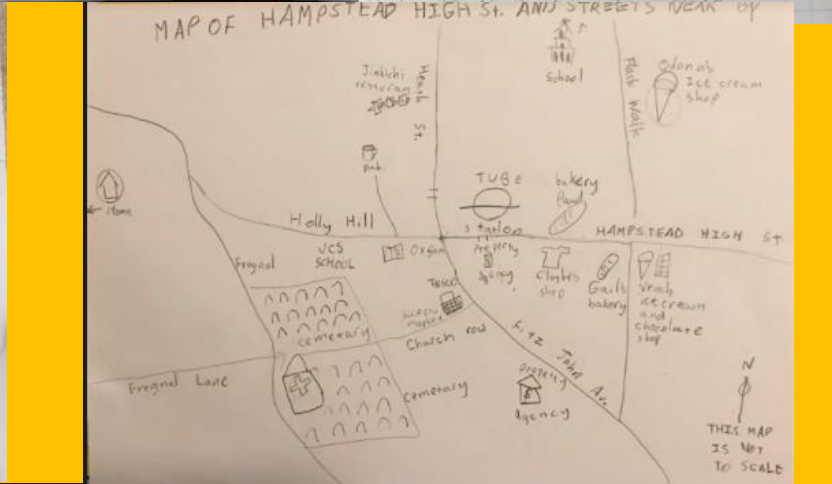 MAP OF HAMPSTEAD HIGH St. AND STREETS NEAR BY
Jinkichi
Heath St.
School
Flask Walk
Ice cream
shop
pub
TUBE
station
bakery
Home
Holly Hill
HAMPSTEAD HIGH St
UCS
SCHOOL
Organ
Property
Agency
Clothes
shop
Gail's
bakery
ice cream
and
chocolate
shop
Frognal
Tesco
cemetary
Church row
Fitz John Av.
Frognal Lane
cemetary
Property
$
Agency
N
THIS MAP
IS NOT
TO SCALE